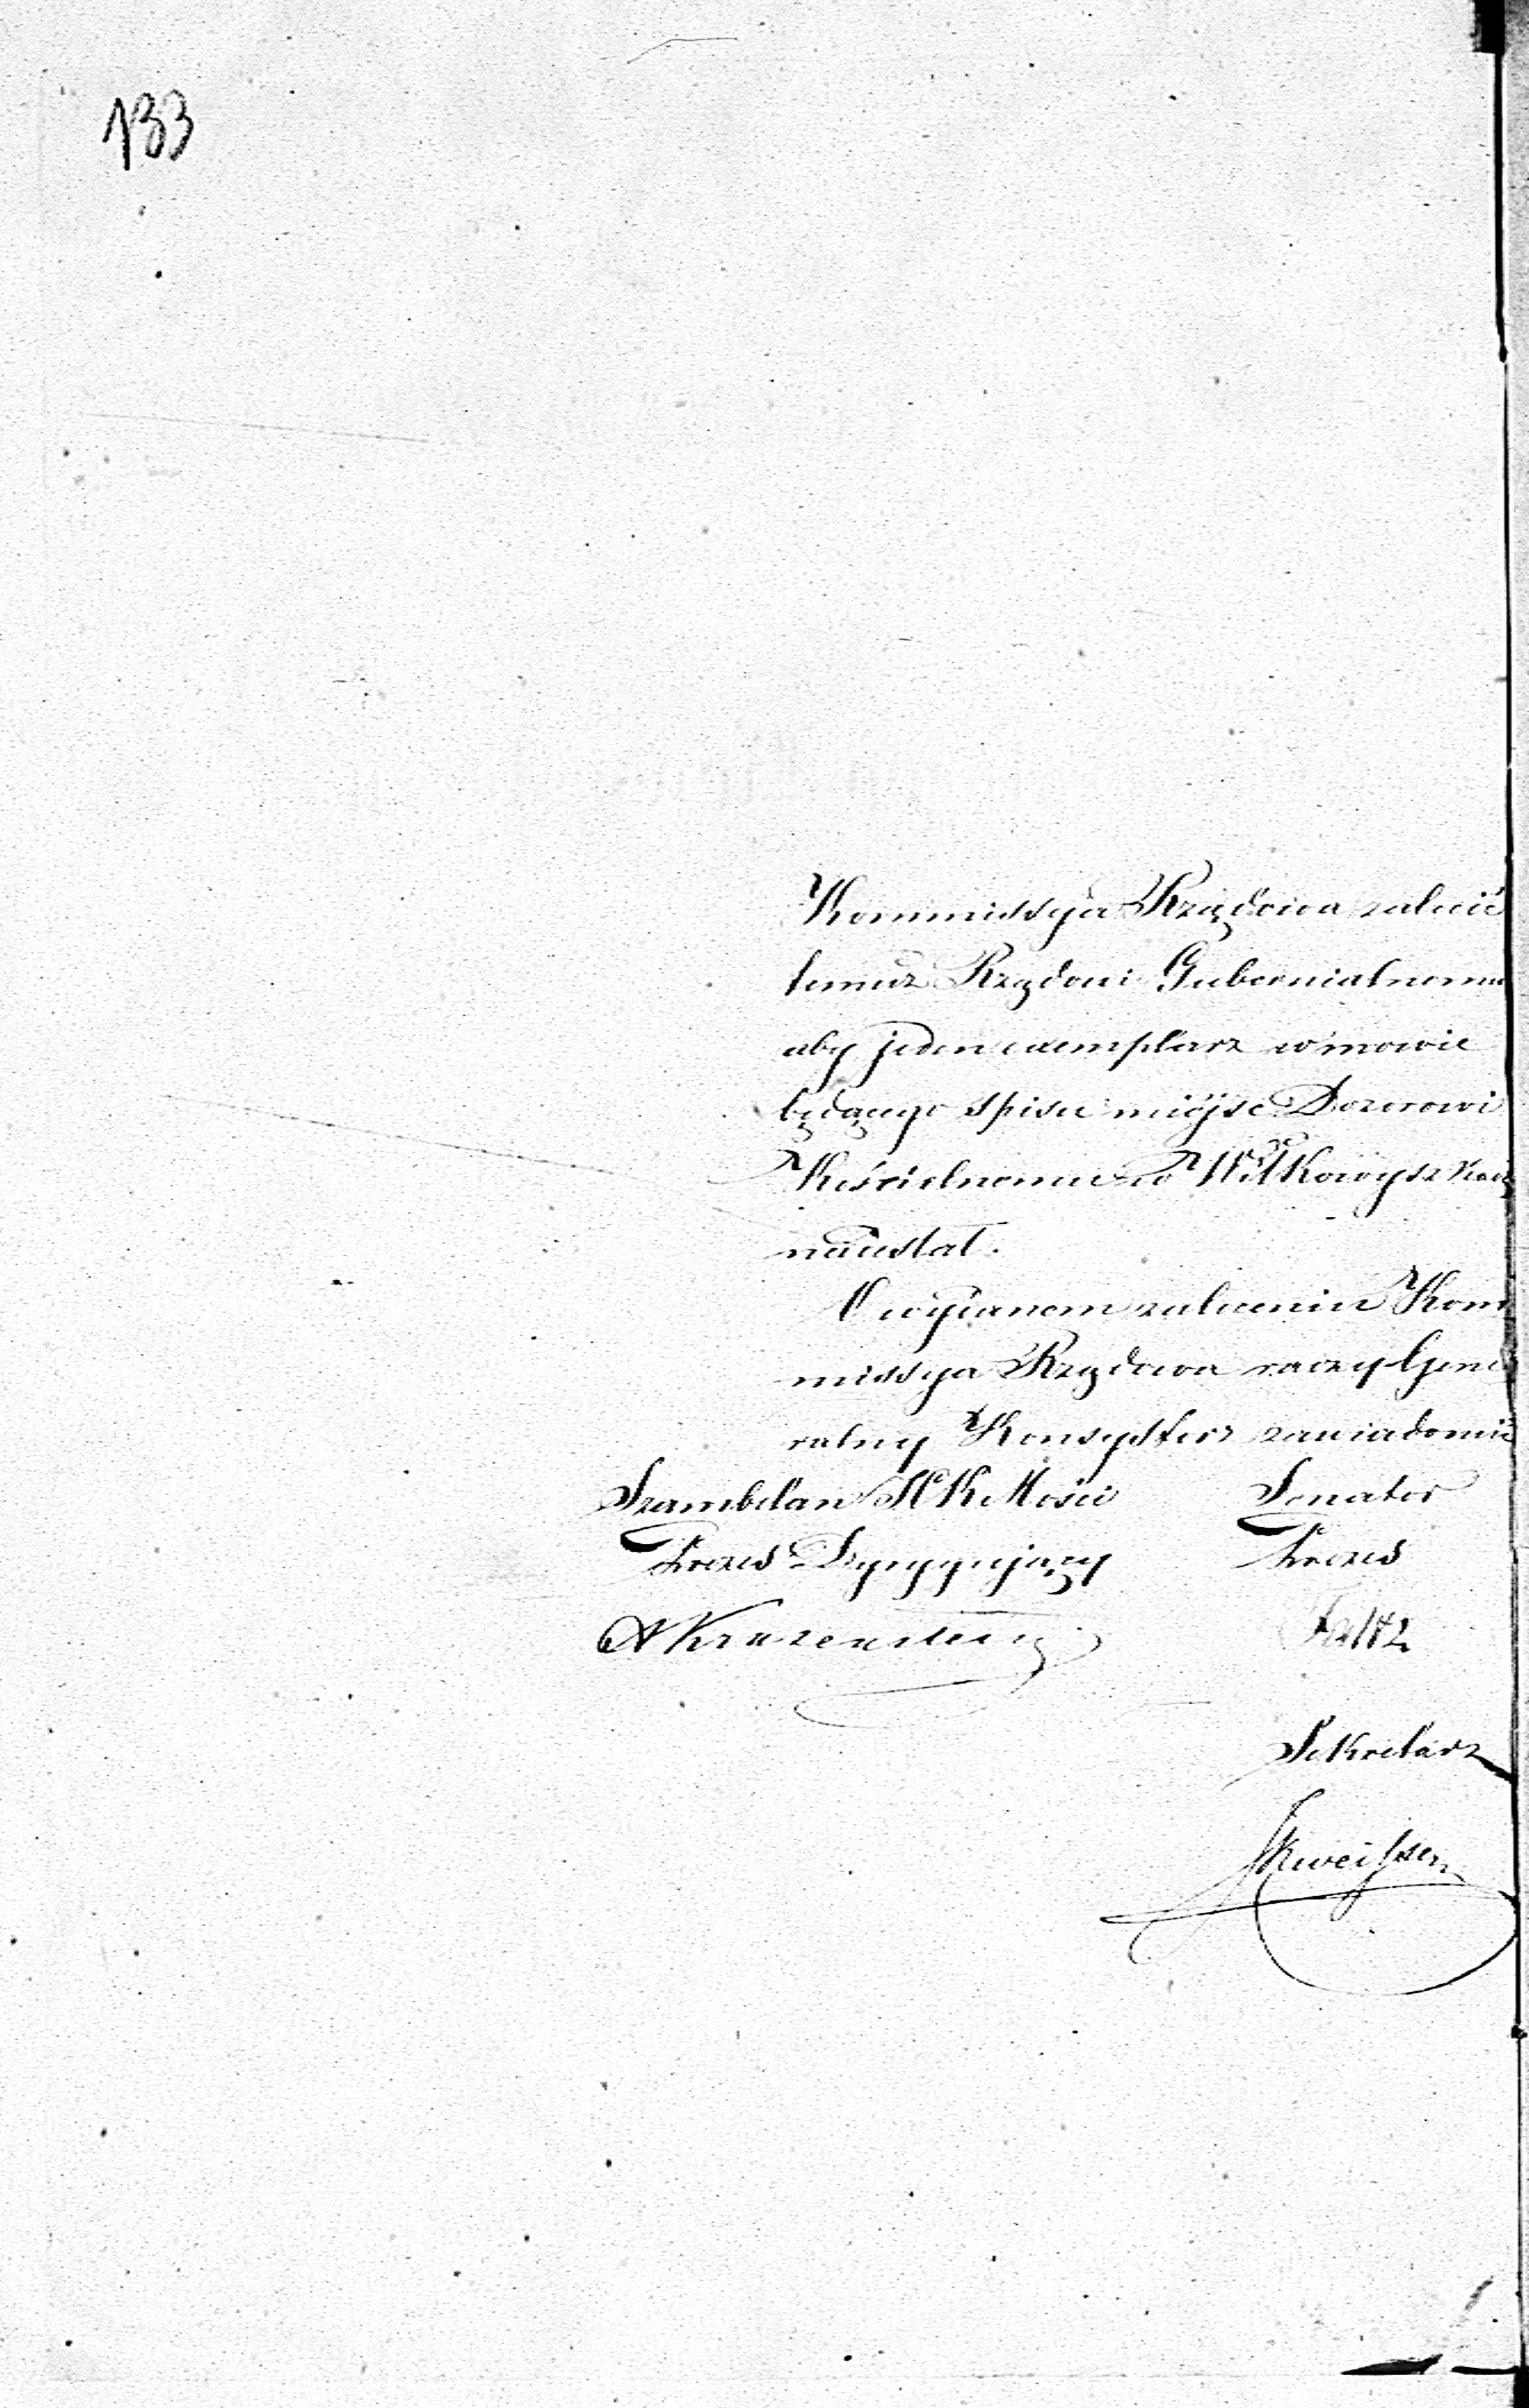 133
Kommissya Rządowa zalecić
temuż Rządowi Gubernialnemu
aby jeden exemplarz w mowie
będącego spisu miejsc Dozorowi
Kościelnemu w Wiłkowyszkach
nadesłał.
O wydanem zaleceniu Kom
missya Rządowa raczy Gene
ralny Konsystorz zawiadomić
Szambelan JCK Mości Senator
Prezes Dyrygujący Prezes
A Kruzenstern
Sekretarz